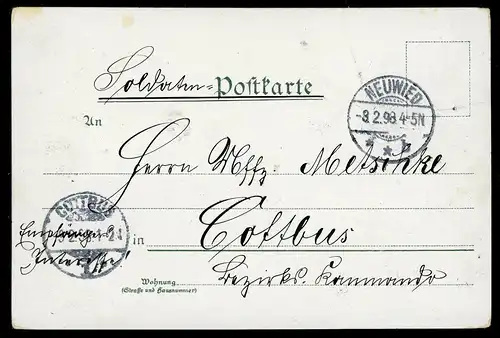 Soldaten-Postkarte
NEUWIED
-8.2.98 4-5N
An
Herrn Uffz. Metschke
COTTBUS
in Cottbus
Bezirks. Kommando
Empfängers
Interesse!
Wohnung
(Straße und Hausnummer)